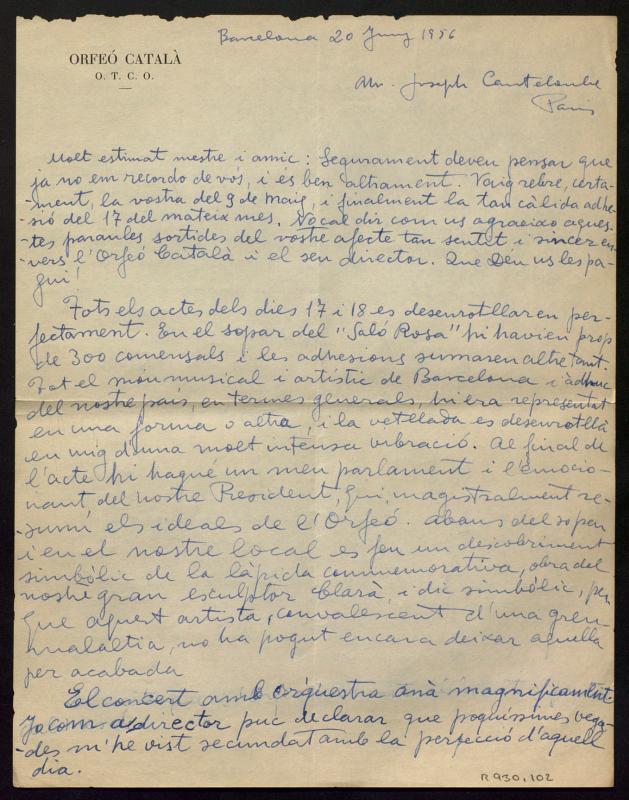 Barcelona 20 Juny 1956
ORFEÓ CATALÀ
O. T. C. O.
Mr. Joseph Canteloube
Paris
Molt estimat mestre i amic: Segurament deveu pensar que
ja no em recordo de vos, i és ben altrament. Vaig rebre, certa-
-ment, la vostra del 9 de Maig, i finalment la tan càlida adhe-
-sió del 17 del mateix mes. No cal dir com us agraeixo aques-
-tes paraules sortides del vostre afecte tan sentit i sincer en-
vers l'Orfeó Català i el seu director. Que Deu us les pa-
gui!
Tots els actes dels dies 17 i 18 es desenrotllaren per-
fectament. En el sopar del "Saló Rosa" hi havien prop
de 300 comensals i les adhesions sumaren altre tant.
Tot el món musical i artístic de Barcelona i àdhuc
del nostre país, en termes generals, hi era representat
en una forma o altra, i la vetllada es desenrotllà
en mig d'una molt intensa vibració. Al final de
l'acte hi hagué un meu parlament i l'emocio-
nant del nostre President, qui, magistralment re-
-sumí els ideals de l'Orfeó. Abans del sopar
i en el nostre local es feu un descobriment
simbòlic de la làpida commemorativa, obra del
nostre gran escultor Clarà, i dic simbòlic, per
que aquest artista, convalescent d'una greu
malaltia, no ha pogut encara deixar aquella
per acabada
El concert amb orquestra anà magníficament
Jo com a director puc declarar que poquíssimes vega-
-des m'he vist secundat amb la perfecció d'aquell
dia.
R 930, 102